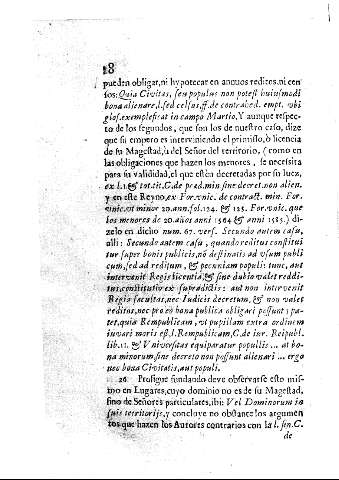 18
pueden obligar, ni hypotecar en annuos reditos, ni cen
sos: Quia Civitas, seu populus non potest huiusmodi
bona alienare, l. sed celsus, ff. de contrahed. empt. ubi
glos. exemplificat in campo Martio. Y aunque respec-
to de los segundos, que son los de nuestro caso, dize
que su empero es interviniendo el permisso, ò licencia
de su Magestad, ù del Señor del territorio, (como en
las obligaciones que hazen los menores, se necessita
para su valididad, el que estèn decretadas por su Iuez,
ex l. 1. & tot. tit. C. de præd. min. sine decret. non alien.
y en este Reyno, ex For. vnic. de contract. min. For.
vnic. ut minor 20. ann. fol. 124. & 125. For. vnic. que
los menores de 20. años anni 1564. & anni 1585.) di-
zelo en dicho num. 67. vers. Secundo autem casu,
ulli: Secundo autem casu, quando reditus constitui
tur super bonis publicis, nō destinatis ad vsum publi
cum, sed ad reditum, & pecuniam populi: tunc, aut
intervenit Regis licentia, & sine dubio valet reddi-
tus, constitutiv ex supradictis: aut non intervenit
Regis facultas, nec Iudicis decretum, & non valet
reditus, nec pro eo bona publica obligari possunt: pa-
tet, quia Rempublicam, vt pupillam extra ordinem
iuvari moris est, l. Rempublicam, C. de iur. Reipubl.
lib. 11. & Vniversitas equiparatur popullis ... at bo-
na minorum, sine decreto non possunt alienari ... ergo
nec bona Civitatis, aut populi.
26. Prosigue fundando deve observarse esto mis-
mo en Lugares, cuyo dominio no es de su Magestad,
sino de Señores particulares, ibi: Vel Dominorum in
suis territorijs, y concluye no obstante los argumen
tos que hazen los Autores contrarios con la l. sen. C.
de